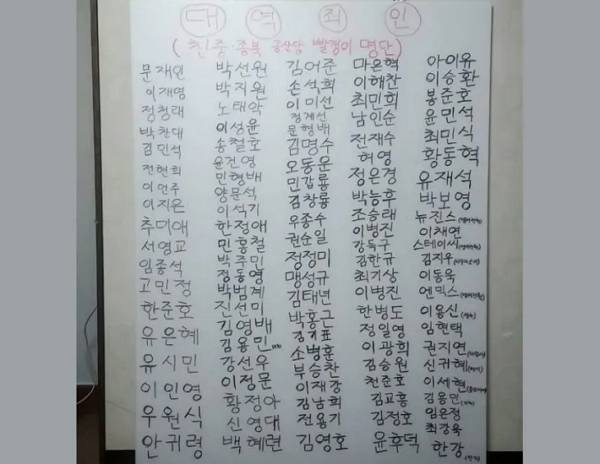 대역죄인
(친중·종북 공산당 빨갱이 명단)
문재인 박선원 김어준 마은혁 아이유
이재명 박지원 손석희 이해찬 이승환
정청래 노태악 이미선 최민희 봉준호
박찬대 이성윤 정계선 남인순 윤민석
김민석 송철호 문형배 전재수 최민식
전현희 윤건영 김명수 허영 황동혁
이언주 민형배 오동운 정은경 유재석
이지은 양문석 민갑룡 박능후 박보영
추미애 이석기 김창룡 조승래 뉴진스
서영교 한정애 우종수 이병진 이채연
임종석 민홍철 권순일 강득구 스테이씨
고민정 박주민 정정미 김한규 김지우
한준호 정동영 맹성규 최기상 이동욱
유은혜 박범계 김태년 이병진 엔믹스
유시민 진선미 박홍근 한병도 이용신
이인영 김영배 김기표 정일영 임현택
우원식 김용민 소병훈 이광희 권지연
안귀령 강선우 부승찬 김승원 신귀혜
이정문 이재강 천준호 이세현
황정아 김남희 김교흥 김용민
신영대 전용기 김정호 임은정
백혜련 김영호 윤후덕 최강욱
한강